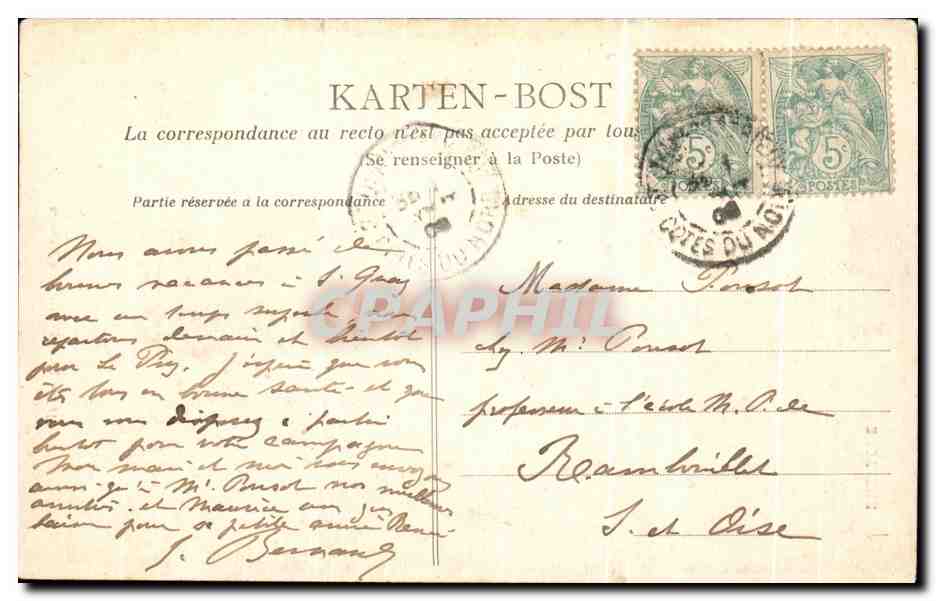 KARTEN-BOST
La correspondance au recto n'est pas acceptée par tous
(Se renseigner à la Poste)
Partie réservée à la correspondance
Adresse du destinataire
5c
POSTES
5c
POSTES
COTES DU NORD
CPAPHIL
Nous avons passé de
bonnes vacances à St Quay
avec un temps superbe
repartons demain et bientôt
pour Le Puy. J'espère que vous
êtes tous en bonne santé et que
vous vous disposez à partir
bientôt pour votre campagne
Mon mari et moi vous envoyons
ainsi qu'à Mr Ponsot nos meilleures
amitiés et Maurice
pour sa petite amie
J. Bernard
Madame Ponsot
chez Mr Ponsot
professeur à l'école M. P. de
Rambouillet
S. et Oise